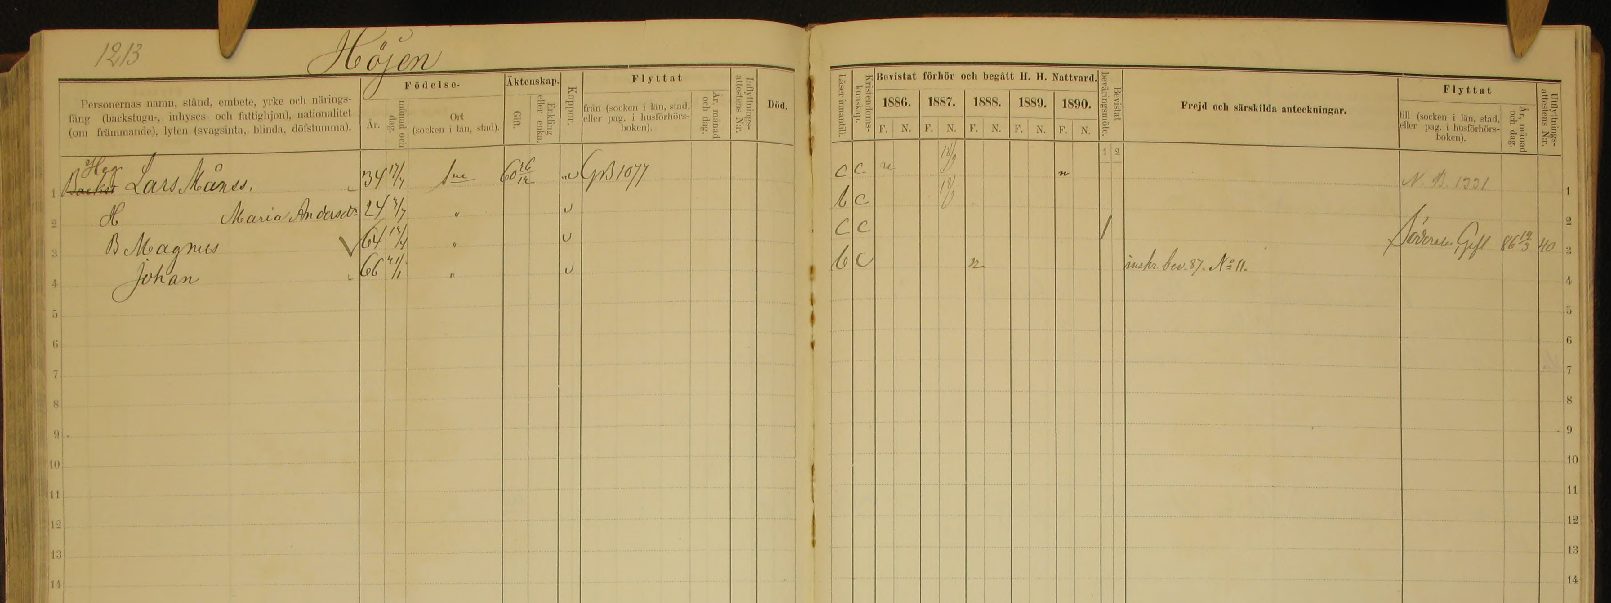 1213
Höjen
Personernas namn, stånd, embete, yrke och närings-
fång (backstugu-, inhyses- och fattighjon), nationalitet
(om främmande), lyten (svagsinta, blinda, döfstumma).
Födelse-
År.
månad och dag.
Ort
(socken i län, stad).
Äktenskap.
Gift.
Enkling eller enka.
Koppor.
Flyttat
från (socken i län, stad,
eller pag. i husförhörs-
boken).
År, månad och dag.
Inflyttnings-attestens N:r.
Död.
Läser innantill.
Kristendoms-kunskap.
Bevistat förhör och begått H. H. Nattvard.
1886. 1887. 1888. 1889. 1890.
F. N. F. N. F. N. F. N. F. N.
Bevistat beväringsmöte.
1 2
Frejd och särskilda anteckningar.
Flyttat
till (socken i län, stad,
eller pag. i husförhörs-
boken).
År, månad och dag.
Utflyttnings-attestens N:r.
1 Lars Månss. 34 17/7 60 26/12 v GB 1077 c c n 18/9 n N. B. 1331 1
2 H Maria Andersdr 24 7/7 " v b c 18/9 2
3 B Magnus 64 " v c c / Gefl 86 19/3 40 3
4 Johan 66 21/1 " v b c n inskr bev. 87. No 11. 4
5 5
6 6
7 7
8 8
9 9
10 10
11 11
12 12
13 13
14 14